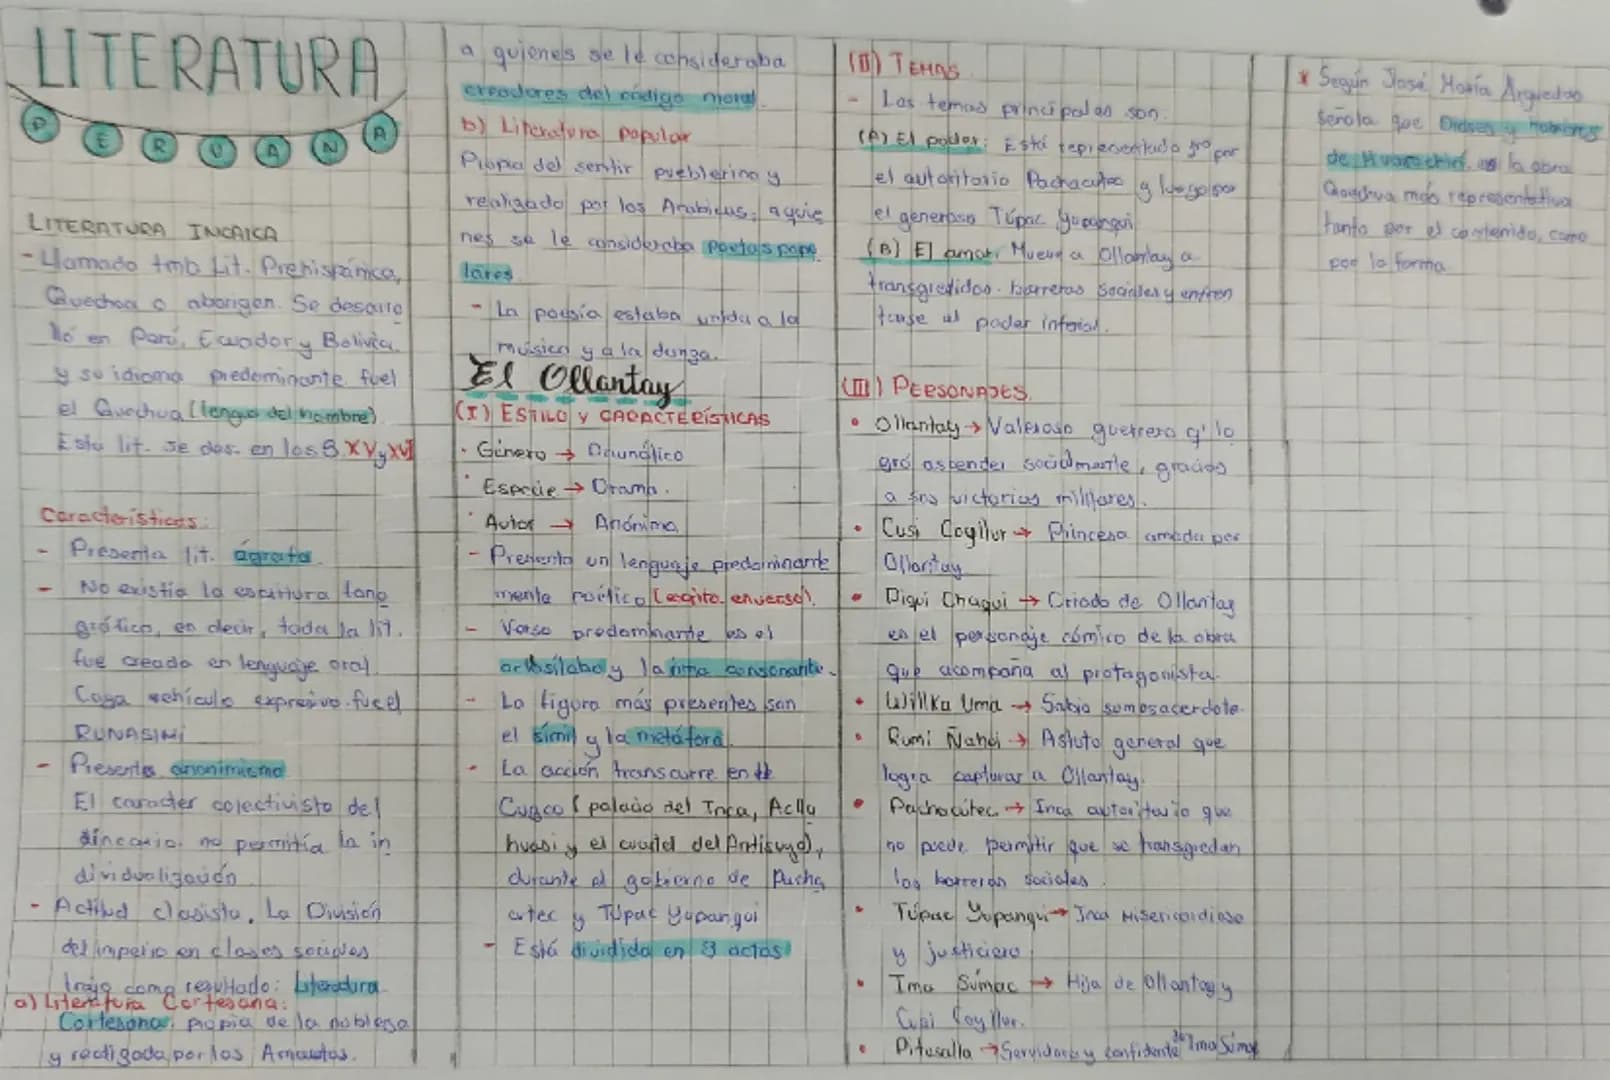 LITERATURA
PERUANA
LITERATURA INCAICA
- Llamado tmb Lit. Prehispánica,
Quechua o aborigen. Se desarro
lló en Perú, Ecuador y Bolivia.
y su idioma predominante fue
el Quechua (lengua del hombre)
Esta lit. se des. en los S. XV y XVI
Características:
- Presenta lit. ágrafa.
- No existía la escritura fono
gráfica, es decir, toda la lit.
fue creada en lenguaje oral.
vehículo expresivo fue el
RUNASIMI
- Presenta anonimismo
El caracter colectivista del
no permitía la in
dividualización
- Actitud clasista. La División
del imperio en clases sociales
trajo como resultado: Literatura
a) Literatura Cortesana:
Cortesana: propia de la nobleza
y realizada por los Amautas.
a quienes se le consideraba
creadores del código moral.
b) Literatura popular
Propia del sentir pueblerino y
realizado por los Arabicus, a quie
nes se le consideraba poetas popu
lares.
- La poesía estaba unida a la
música y a la danza.
El Ollantay
(I) ESTILO Y CARACTERÍSTICAS
• Género → Dramático
• Especie → Drama.
• Autor → Anónimo
- Presenta un lenguaje predominante
mente poético (escrito en verso).
- Verso predominante es el
octosílabo y la rima consonante.
- La figura más presentes son
el símil y la metáfora.
- La acción transcurre en
Cuzco (palacio del Inca, Aclla
huasi y el cuartel del Antisuyo),
durante el gobierno de Pacha
cutec y Túpac Yupanqui
- Está dividida en 3 actos
(II) TEMAS
- Los temas principales son.
(A) El poder: Está representado 1ro por
el autoritario Pachacútec y luego por
el generoso Túpac Yupanqui
(B) El amor: Mueve a Ollantay a
transgredidos barreras sociales y enfren
tarse al poder
(III) PERSONAJES.
• Ollantay → Valeroso guerrero q' lo
gró ascender socialmente, gracias
a sus victorias militares.
• Cusi Coyllur → Princesa amada por
Ollantay
• Piqui Chaqui → Criado de Ollantay
es el personaje cómico de la obra
que acompaña al protagonista.
• Willka Uma → Sabio sumosacerdote.
• Rumi Ñahui → Astuto general que
logra capturar a Ollantay.
• Pachacútec → Inca autoritario que
no puede permitir que se transgredan
las barreras sociales.
• Túpac Yupanqui → Inca Misericordioso
y justiciero
• Ima Súmac → Hija de Ollantay y
Cusi Coyllur.
• Pitusalla → Servidora y confidente de Ima Súmac
* Según José María Arguedas
señala que Dioses y Hombres
de Huarochirí, es la obra
Quechua más representativa
tanto por el contenido, como
por la forma